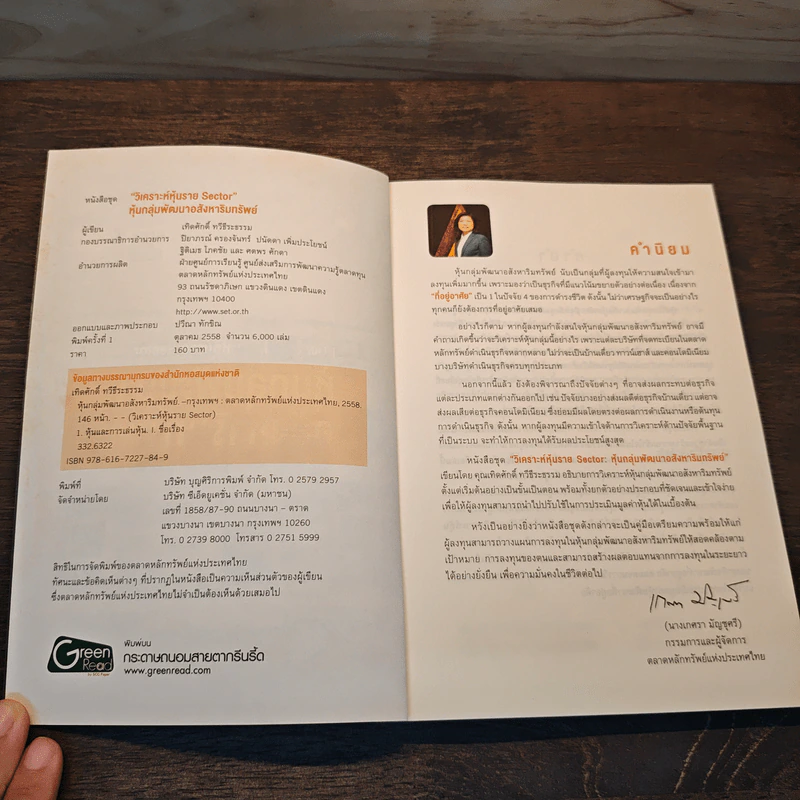 หนังสือชุด "วิเคราะห์หุ้นราย Sector"
หุ้นกลุ่มพัฒนาอสังหาริมทรัพย์
ผู้เขียน เทิดศักดิ์ ทวีธีระธรรม
กองบรรณาธิการอำนวยการ ปิยาภรณ์ ครองจันทร์ ปนัดดา เพิ่มประโยชน์
ฐิติเมธ โภคชัย และ ศตพร ศักดา
อำนวยการผลิต ฝ่ายศูนย์การเรียนรู้ ศูนย์ส่งเสริมการพัฒนาความรู้ตลาดทุน
ตลาดหลักทรัพย์แห่งประเทศไทย
93 ถนนรัชดาภิเษก แขวงดินแดง เขตดินแดง
กรุงเทพฯ 10400
http://www.set.or.th
ออกแบบและภาพประกอบ ปวีณา ทักขิณ
พิมพ์ครั้งที่ 1 ตุลาคม 2558 จำนวน 6,000 เล่ม
ราคา 160 บาท
ข้อมูลทางบรรณานุกรมของสำนักหอสมุดแห่งชาติ
เทิดศักดิ์ ทวีธีระธรรม
หุ้นกลุ่มพัฒนาอสังหาริมทรัพย์. --กรุงเทพฯ : ตลาดหลักทรัพย์แห่งประเทศไทย; 2558.
146 หน้า. - - (วิเคราะห์หุ้นราย Sector)
1. หุ้นและการเล่นหุ้น. I. ชื่อเรื่อง
332.6322
ISBN 978-616-7227-84-9
พิมพ์ที่ บริษัท บุญศิริการพิมพ์ จำกัด โทร. 0 2579 2957
จัดจำหน่ายโดย บริษัท ซีเอ็ดยูเคชั่น จำกัด (มหาชน)
เลขที่ 1858/87-90 ถนนบางนา - ตราด
แขวงบางนา เขตบางนา กรุงเทพฯ 10260
โทร. 0 2739 8000 โทรสาร 0 2751 5999
สิทธิในการจัดพิมพ์ของตลาดหลักทรัพย์แห่งประเทศไทย
ทัศนะและข้อคิดเห็นต่างๆ ที่ปรากฏในหนังสือเป็นความเห็นส่วนตัวของผู้เขียน
ซึ่งตลาดหลักทรัพย์แห่งประเทศไทยไม่จำเป็นต้องเห็นด้วยเสมอไป
Green Read
พิมพ์บน
กระดาษถนอมสายตากรีนรี้ด
www.greenread.com
คำนิยม
หุ้นกลุ่มพัฒนาอสังหาริมทรัพย์ นับเป็นกลุ่มที่ผู้ลงทุนให้ความสนใจเข้ามา
ลงทุนเพิ่มมากขึ้น เพราะมองว่าเป็นธุรกิจที่มีแนวโน้มขยายตัวอย่างต่อเนื่อง เนื่องจาก
"ที่อยู่อาศัย" เป็น 1 ในปัจจัย 4 ของการดำรงชีวิต ดังนั้น ไม่ว่าเศรษฐกิจจะเป็นอย่างไร
ทุกคนก็ยังต้องการที่อยู่อาศัยเสมอ
อย่างไรก็ตาม หากผู้ลงทุนกำลังสนใจหุ้นกลุ่มพัฒนาอสังหาริมทรัพย์ อาจมี
คำถามเกิดขึ้นว่าจะวิเคราะห์หุ้นกลุ่มนี้อย่างไร เพราะแต่ละบริษัทที่จดทะเบียนในตลาด
หลักทรัพย์ดำเนินธุรกิจหลากหลาย ไม่ว่าจะเป็นบ้านเดี่ยว ทาวน์เฮาส์ และคอนโดมิเนียม
บางบริษัทดำเนินธุรกิจครบทุกประเภท
นอกจากนี้แล้ว ยังต้องพิจารณาถึงปัจจัยต่างๆ ที่อาจส่งผลกระทบต่อธุรกิจ
แต่ละประเภทแตกต่างกันออกไป เช่น ปัจจัยบางอย่างส่งผลดีต่อธุรกิจบ้านเดี่ยว แต่อาจ
ส่งผลเสียต่อธุรกิจคอนโดมิเนียม ซึ่งย่อมมีผลโดยตรงต่อผลการดำเนินงานหรือต้นทุน
การดำเนินธุรกิจ ดังนั้น หากผู้ลงทุนมีความเข้าใจด้านการวิเคราะห์ด้านปัจจัยพื้นฐาน
ที่เป็นระบบ จะทำให้การลงทุนได้รับผลประโยชน์สูงสุด
หนังสือชุด "วิเคราะห์หุ้นราย Sector: หุ้นกลุ่มพัฒนาอสังหาริมทรัพย์"
เขียนโดย คุณเทิดศักดิ์ ทวีธีระธรรม อธิบายการวิเคราะห์หุ้นกลุ่มพัฒนาอสังหาริมทรัพย์
ตั้งแต่เริ่มต้นอย่างเป็นขั้นเป็นตอน พร้อมทั้งยกตัวอย่างประกอบที่ชัดเจนและเข้าใจง่าย
เพื่อให้ผู้ลงทุนสามารถนำไปปรับใช้ในการประเมินมูลค่าหุ้นได้ในเบื้องต้น
หวังเป็นอย่างยิ่งว่าหนังสือชุดดังกล่าวจะเป็นคู่มือเตรียมความพร้อมให้แก่
ผู้ลงทุนสามารถวางแผนการลงทุนในหุ้นกลุ่มพัฒนาอสังหาริมทรัพย์ให้สอดคล้องตาม
เป้าหมาย การลงทุนของตนและสามารถสร้างผลตอบแทนจากการลงทุนในระยะยาว
ได้อย่างยั่งยืน เพื่อความมั่นคงในชีวิตต่อไป
(นางเกศรา มัญชุศรี)
กรรมการและผู้จัดการ
ตลาดหลักทรัพย์แห่งประเทศไทย